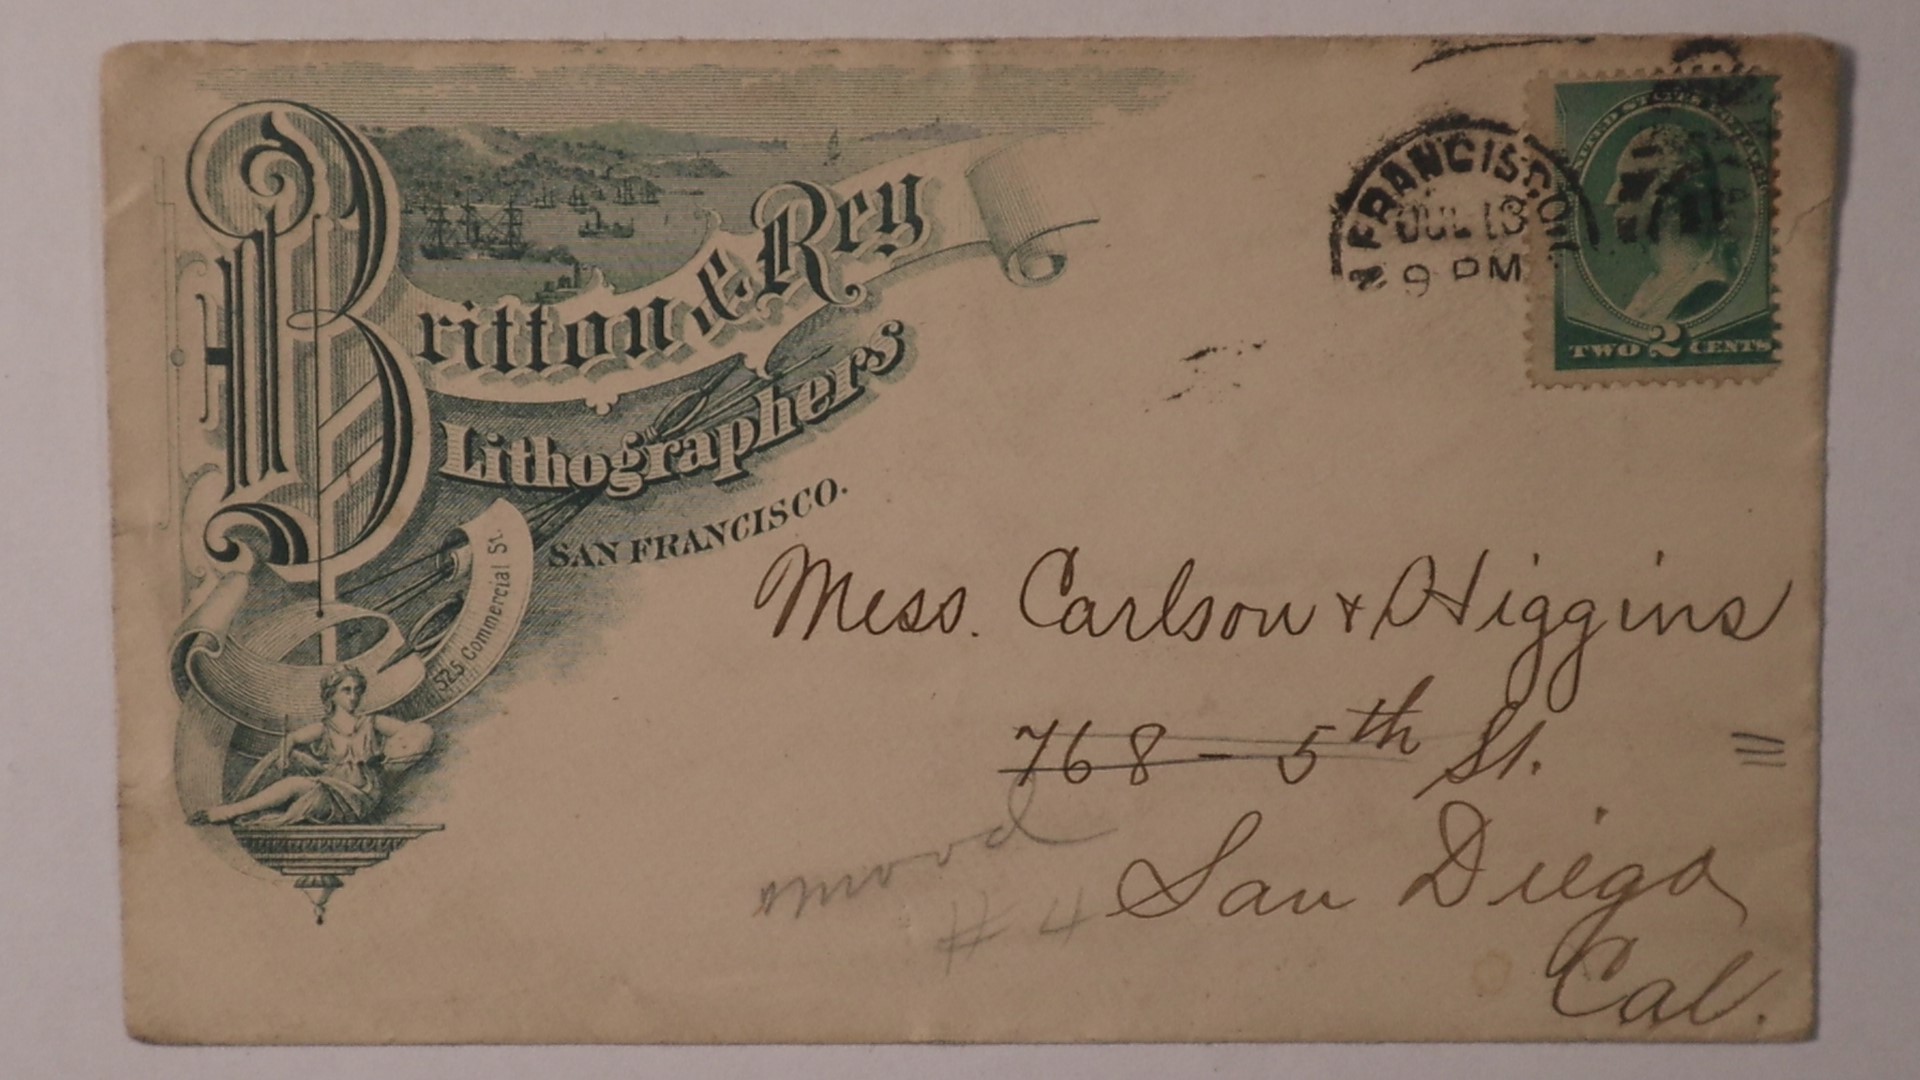 Britton & Rey
Lithographers
SAN FRANCISCO.
525 Commercial St.
N FRANCISCO
JUL 18
9 PM
UNITED STATES POSTAGE
TWO 2 CENTS
Mess. Carlson & Higgins
768 - 5th St.
San Diego
Cal.
# 4